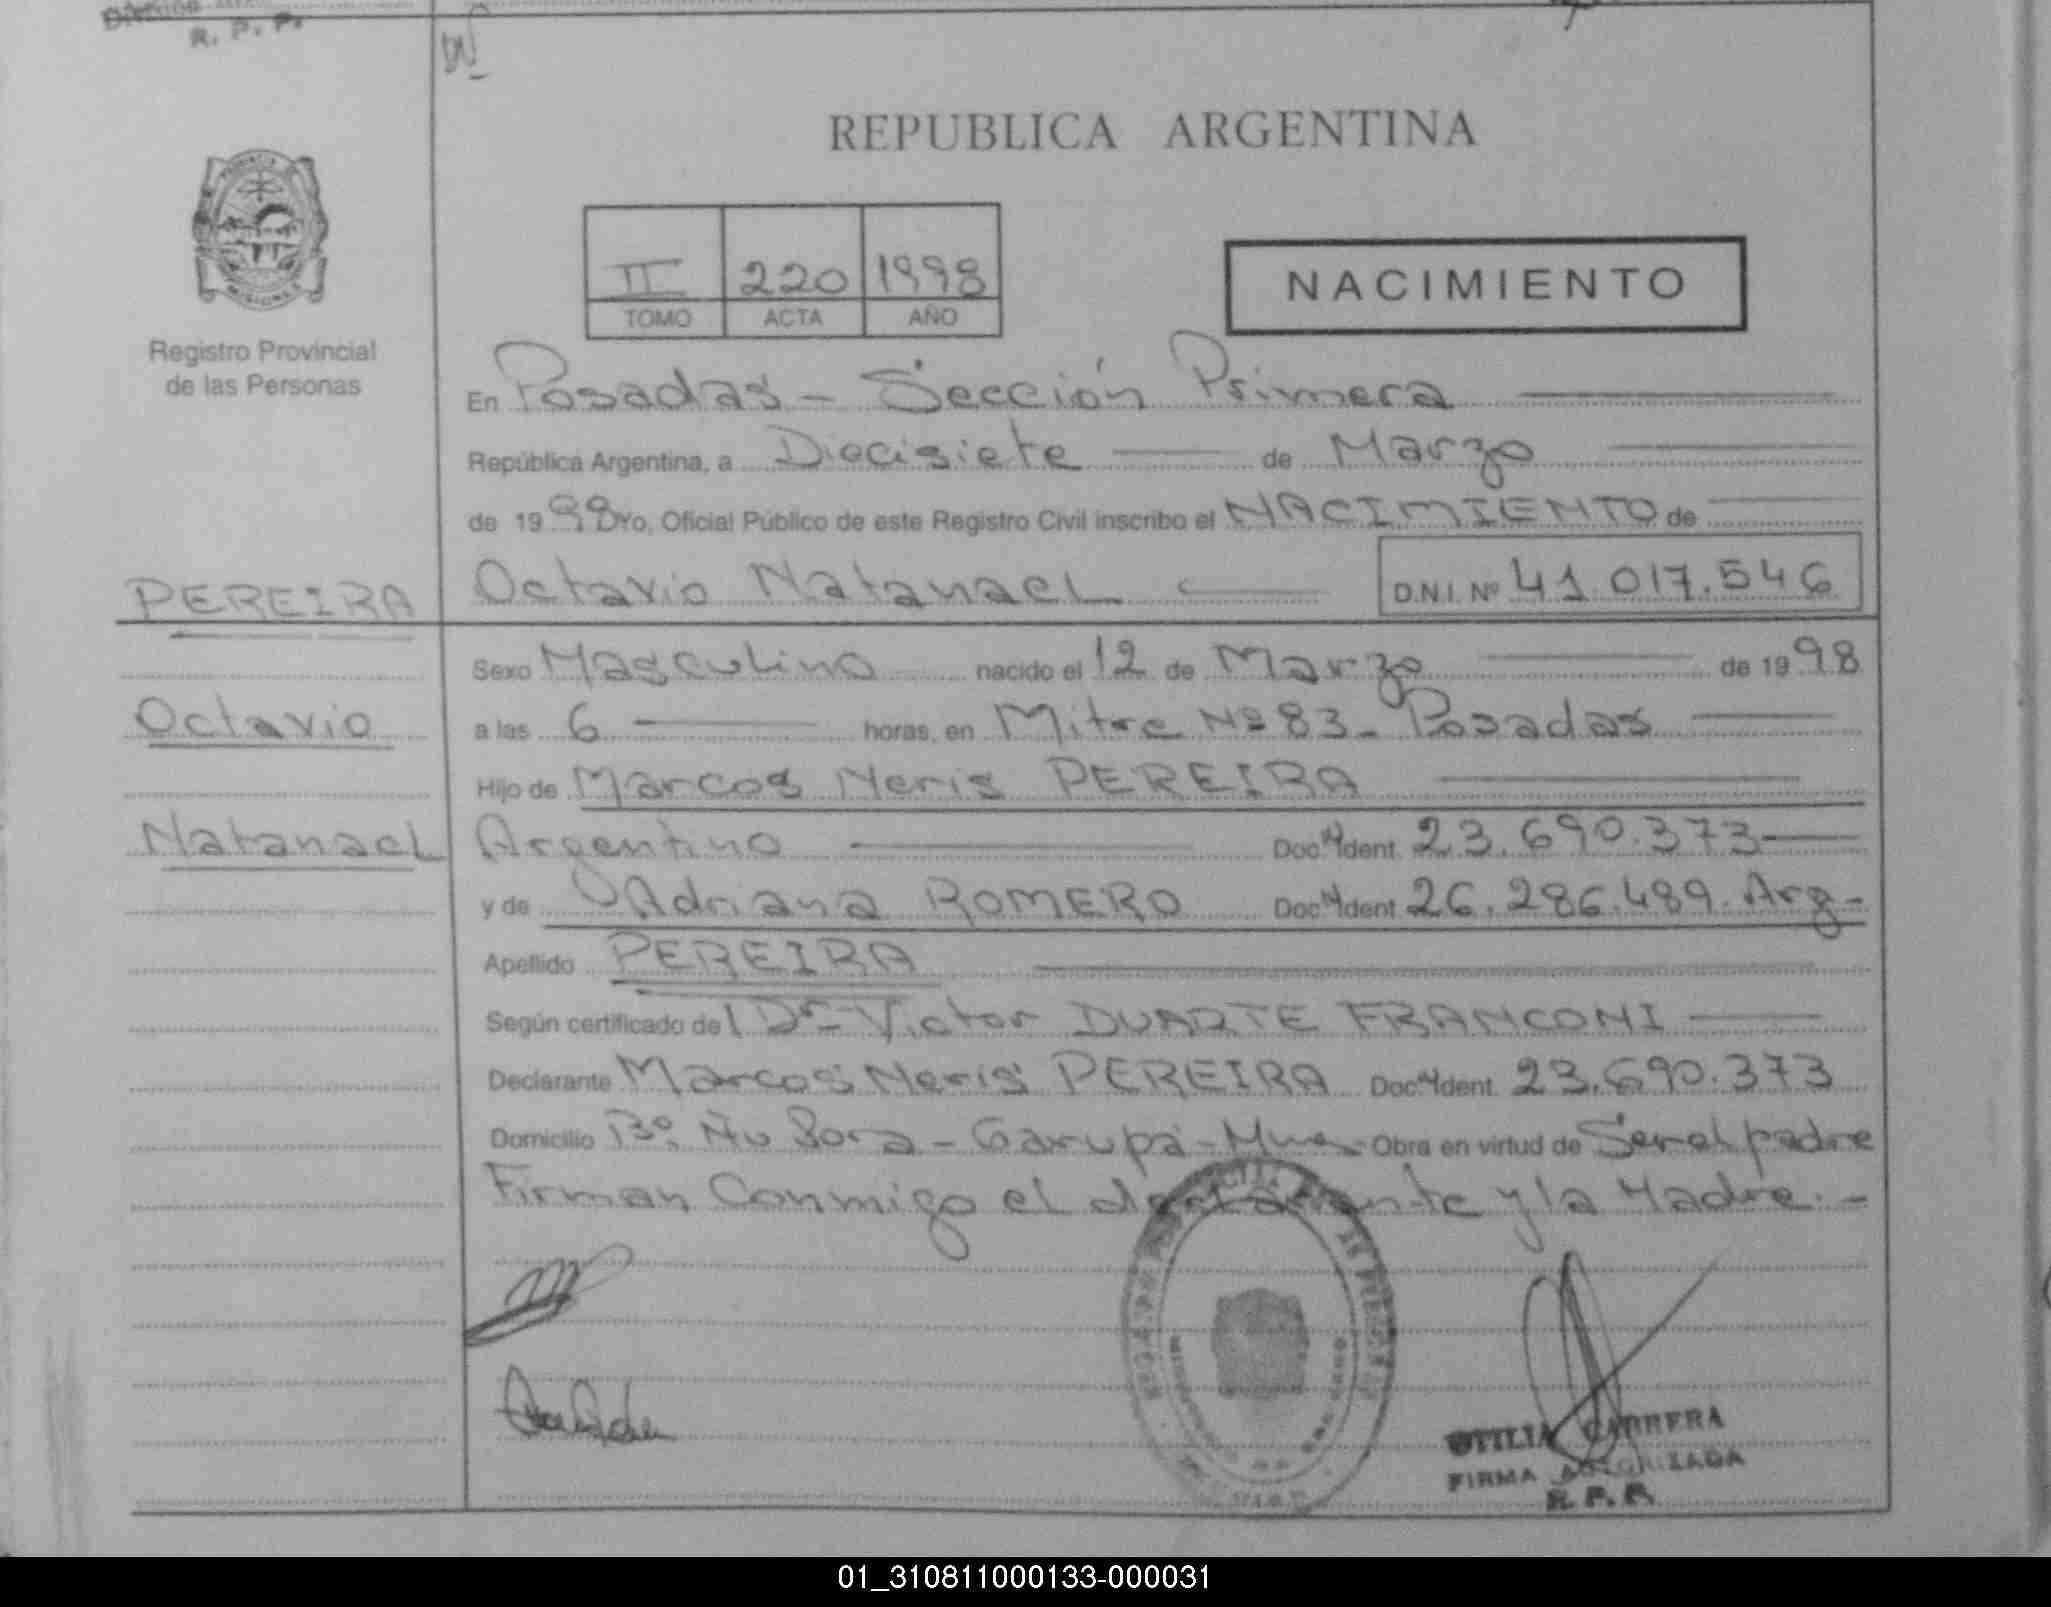 R. P. P.
REPUBLICA ARGENTINA
PROVINCIA
MISIONES
Registro Provincial
de las Personas
II 220 1998
TOMO ACTA AÑO
NACIMIENTO
En Posadas - Sección Primera
República Argentina, a Diecisiete de Marzo
de 1998 Yo, Oficial Público de este Registro Civil inscribo el NACIMIENTO de
PEREIRA Octavio Natanael D.N.I. Nº 41.017.546
Sexo Masculino nacido el 12 de Marzo de 1998
Octavio a las 6 horas, en Mitre Nº 83 - Posadas
Hijo de Marcos Neris PEREIRA
Natanael Argentino Doc. Ident. 23.690.373
y de Adriana ROMERO Doc. Ident. 26.286.489. Arg-
Apellido PEREIRA
Según certificado de Dr. Victor DUARTE FRANCONI
Declarante Marcos Neris PEREIRA Doc. Ident. 23.690.373
Domicilio Bº. Ñu Pora - Garupá - Mnes - Obra en virtud de Ser el padre
Firman Conmigo el declarante y la Madre. -
OTILIA CARRERA
FIRMA AUTORIZADA
R. P. P.
01_310811000133-000031